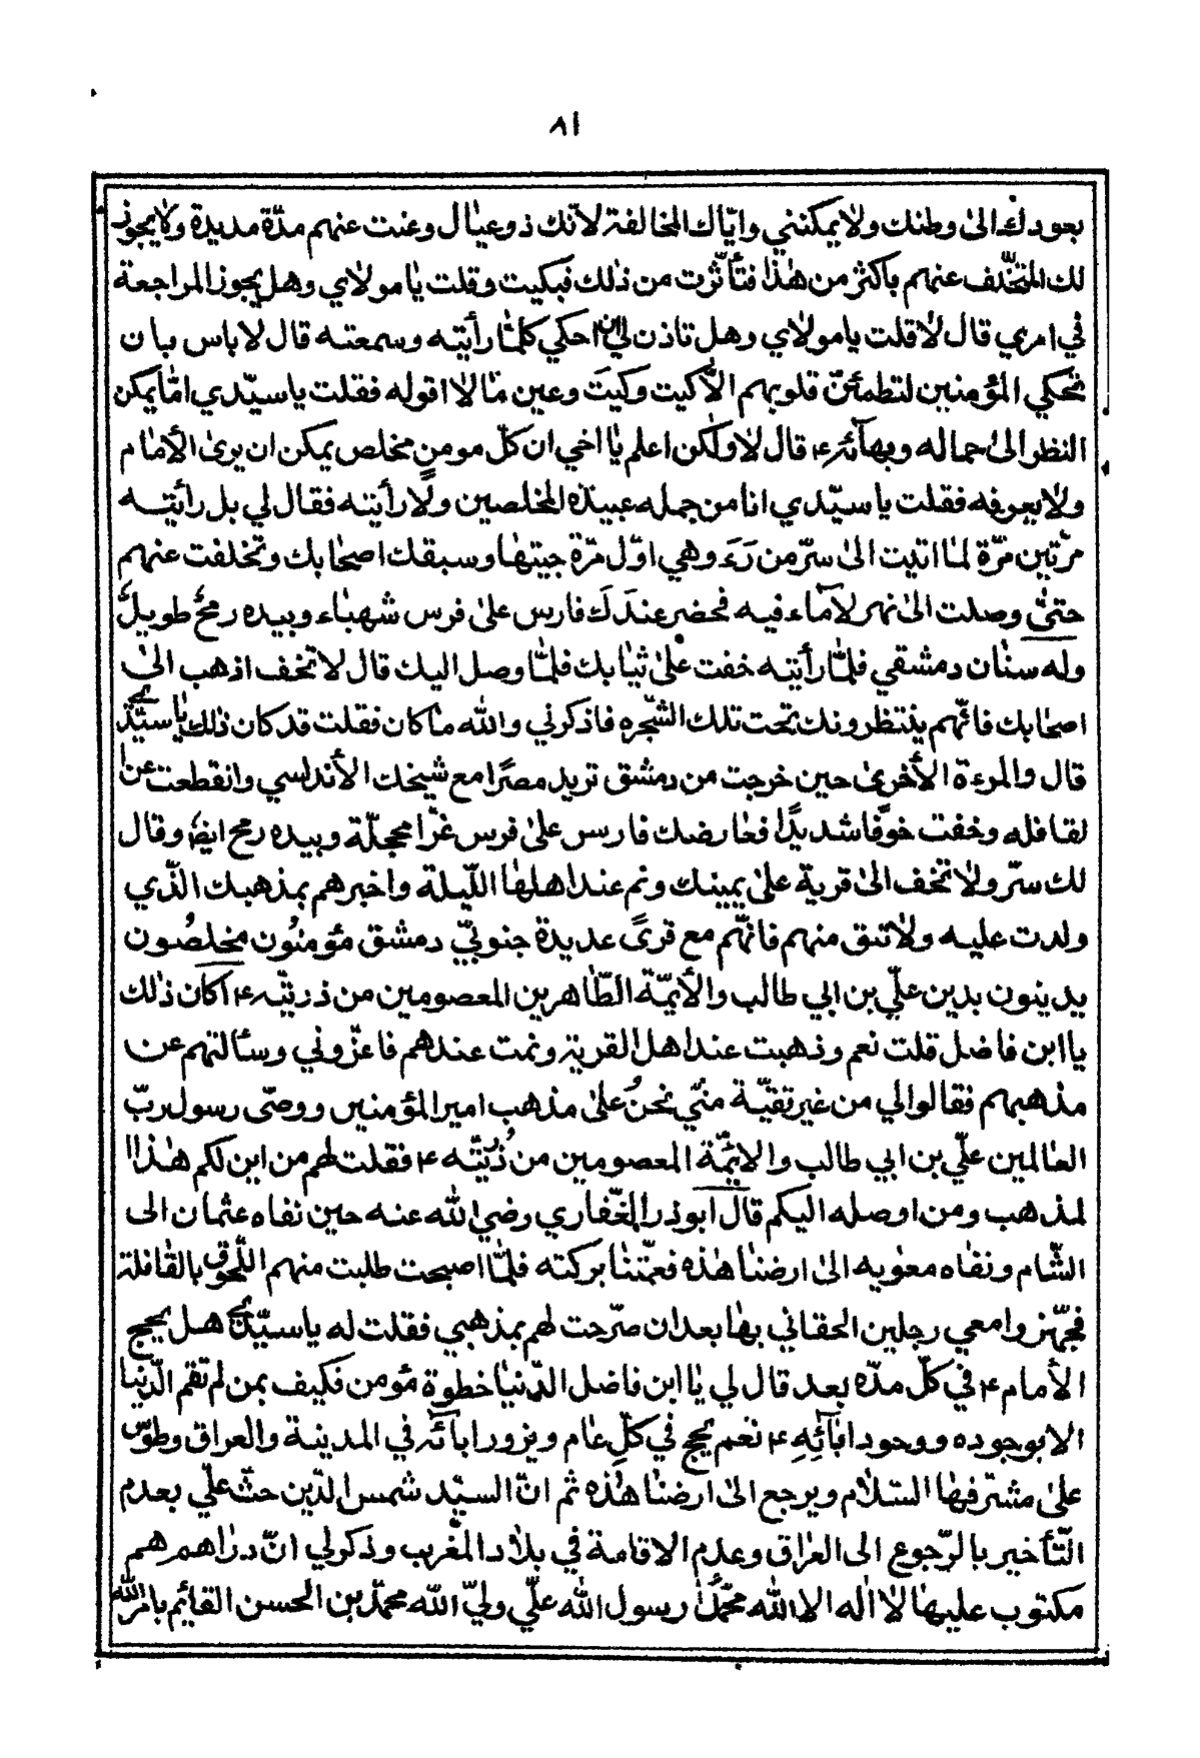 ٨١
بعودك الىٰ وطنك ولا يمكنني وايّاك المخالفة لانّك ذو عيٰال وغنت عنهم مدّة مديدة ولا يجوز
لك التخلّف عنهم باكثر من هٰذا فتأثّرت من ذٰلك فبكيت وقلت يٰا مولاي وهل يجوز المراجعة
في امري قال لا قلت يا مولاي وهل تاذن لي ان احكي كلمّا رأيته وسمعته قال لا باس بان
تحكي المؤمنين لتطمئنّ قلوبهم الّا كيت وكيَت وعين مٰا لا اقوله فقلت يا سيّدي امّا يمكن
النظر الىٰ جماله وبهآئه ع قال لا ولٰكن اعلم يٰا اخي ان كلّ مومنٍ مخلص يمكن ان يرىٰ الأمٰام
ولا يعرفه فقلت يا سيّدي انا من جمله عبيده المخلصين ولا رأيته فقال لي بل رأيته
مرّتين مرّة لمٰا اتيت الىٰ سرّ من رَءَ وهي اوّل مرّة جيتهٰا وسبقك اصحٰابك وتخلفت عنهم
حتىّٰ وصلت الىٰ نهر لا مٰاء فيه فحضر عندَكَ فارس علىٰ فرس شهبٰاء وبيده رمحٌ طويلٌ
وله سنٰان دمشقي فلمّا رأيته خفت علىٰ ثيٰابك فلمّا وصل اليك قال لا تخف اذهب الىٰ
اصحٰابك فانّهم ينتظرونك تحت تلك الشّجره فاذكرني والله مٰا كان فقلت قد كان ذٰلك يٰا سيّدي
قال والمرءة الأخرىٰ حين خرجت من دمشق تريد مصرًا مع شيخك الأندلسي وانقطعت عن
لقافله وخفت خوفًا شديدًا فعٰارضك فارس علىٰ فرس غرّا محجلّة وبيده رمح ايضًا وقال
لك سرّ ولا تخف الىٰ قرية علىٰ يمينك ونم عند اهلهٰا اللّيلة واخبرهم بمذهبك الّذي
ولدت عليه ولاٰ تتق منهم فانّهم مع قرىً عديدة جنوبيّ دمشق مؤمنُون مخلصُون
يدينون بدين عليّ بن ابي طالب والأئمّة الطّاهرين المعصومين من ذريّته ع أكان ذٰلك
يا ابن فاضل قلت نعم وذهبت عند اهل القرية ونمت عندهم فاعزّوني وسئالتهم عن
مذهبهم فقالوا لي من غير تقيّة منّي نحنُ علىٰ مذهب امير المؤمنين ووصّى رسول ربّ
العٰالمين عليّ بن ابي طالب والائمّة المعصومين من ذُريّته ع فقلت لهم من اين لكم هٰذا ا
لمذهب ومن اوصله اليكم قال ابوذر الغّفاري رضي الله عنه حين نفاه عثمان الى
الشّام ونفٰاه معٰويه الىٰ ارضنٰا هٰذه فعمّتنٰا بركته فلمّا اصبحت طلبت منهم اللّحوق بالقٰافلة
فجهّزوا معي رجلين الحقاني بهٰا بعد ان صرّحت لهم بمذهبي فقلت له يا سيّدي هل يحج
الأمام ع في كلّ مدّه بعد قال لي يٰا ابن فاضل الدّنيٰا خطوة مؤمن فكيف بمن لم تقم الّدنيا
الا بوجوده ووجود ابٰآئِهِ ع نعم يحج في كلّ عٰام ويزور ابٰآئه في المدينة والعراق وطوس
علىٰ مشرّفهٰا السّلام ويرجع الىٰ ارضنٰا هٰذه ثم انّ السيّد شمس الدّين حثّ علّي بعدم
التّأخير بالرّجوع الى العرٰاق وعدم الاقٰامة في بلاد المغرب وذكر لي انّ درٰاهمهم
مكتوب عليهٰا لا اله الا الله محمّدٌ رسول الله عليّ وليّ الله محمّد بن الحسن القائم بامر الله